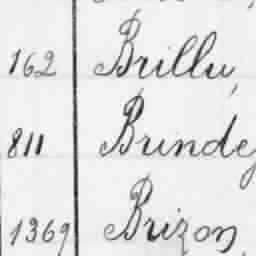 162 Brillu,
811 Brinde
1369 Brizon,